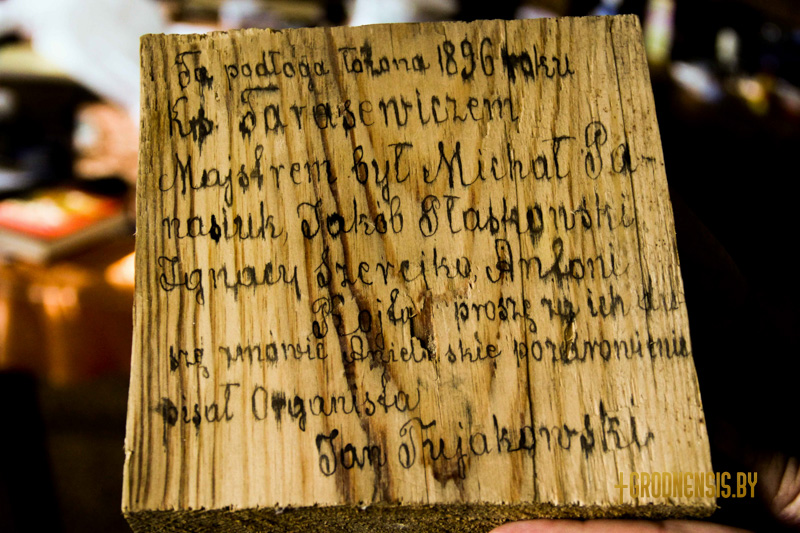 Ta podłoga łożona 1896 roku
Kp Tarasewiczem
Majstrem był Michał Pa-
nasiuk Jakób Płaskowski
Ignacy Szerejko, Antoni
Kojła proszę za ich du
szę zmówić Anielskie pozdrowienie
pisał Organista
Jan Tujakowski
GRODNENSIS.BY